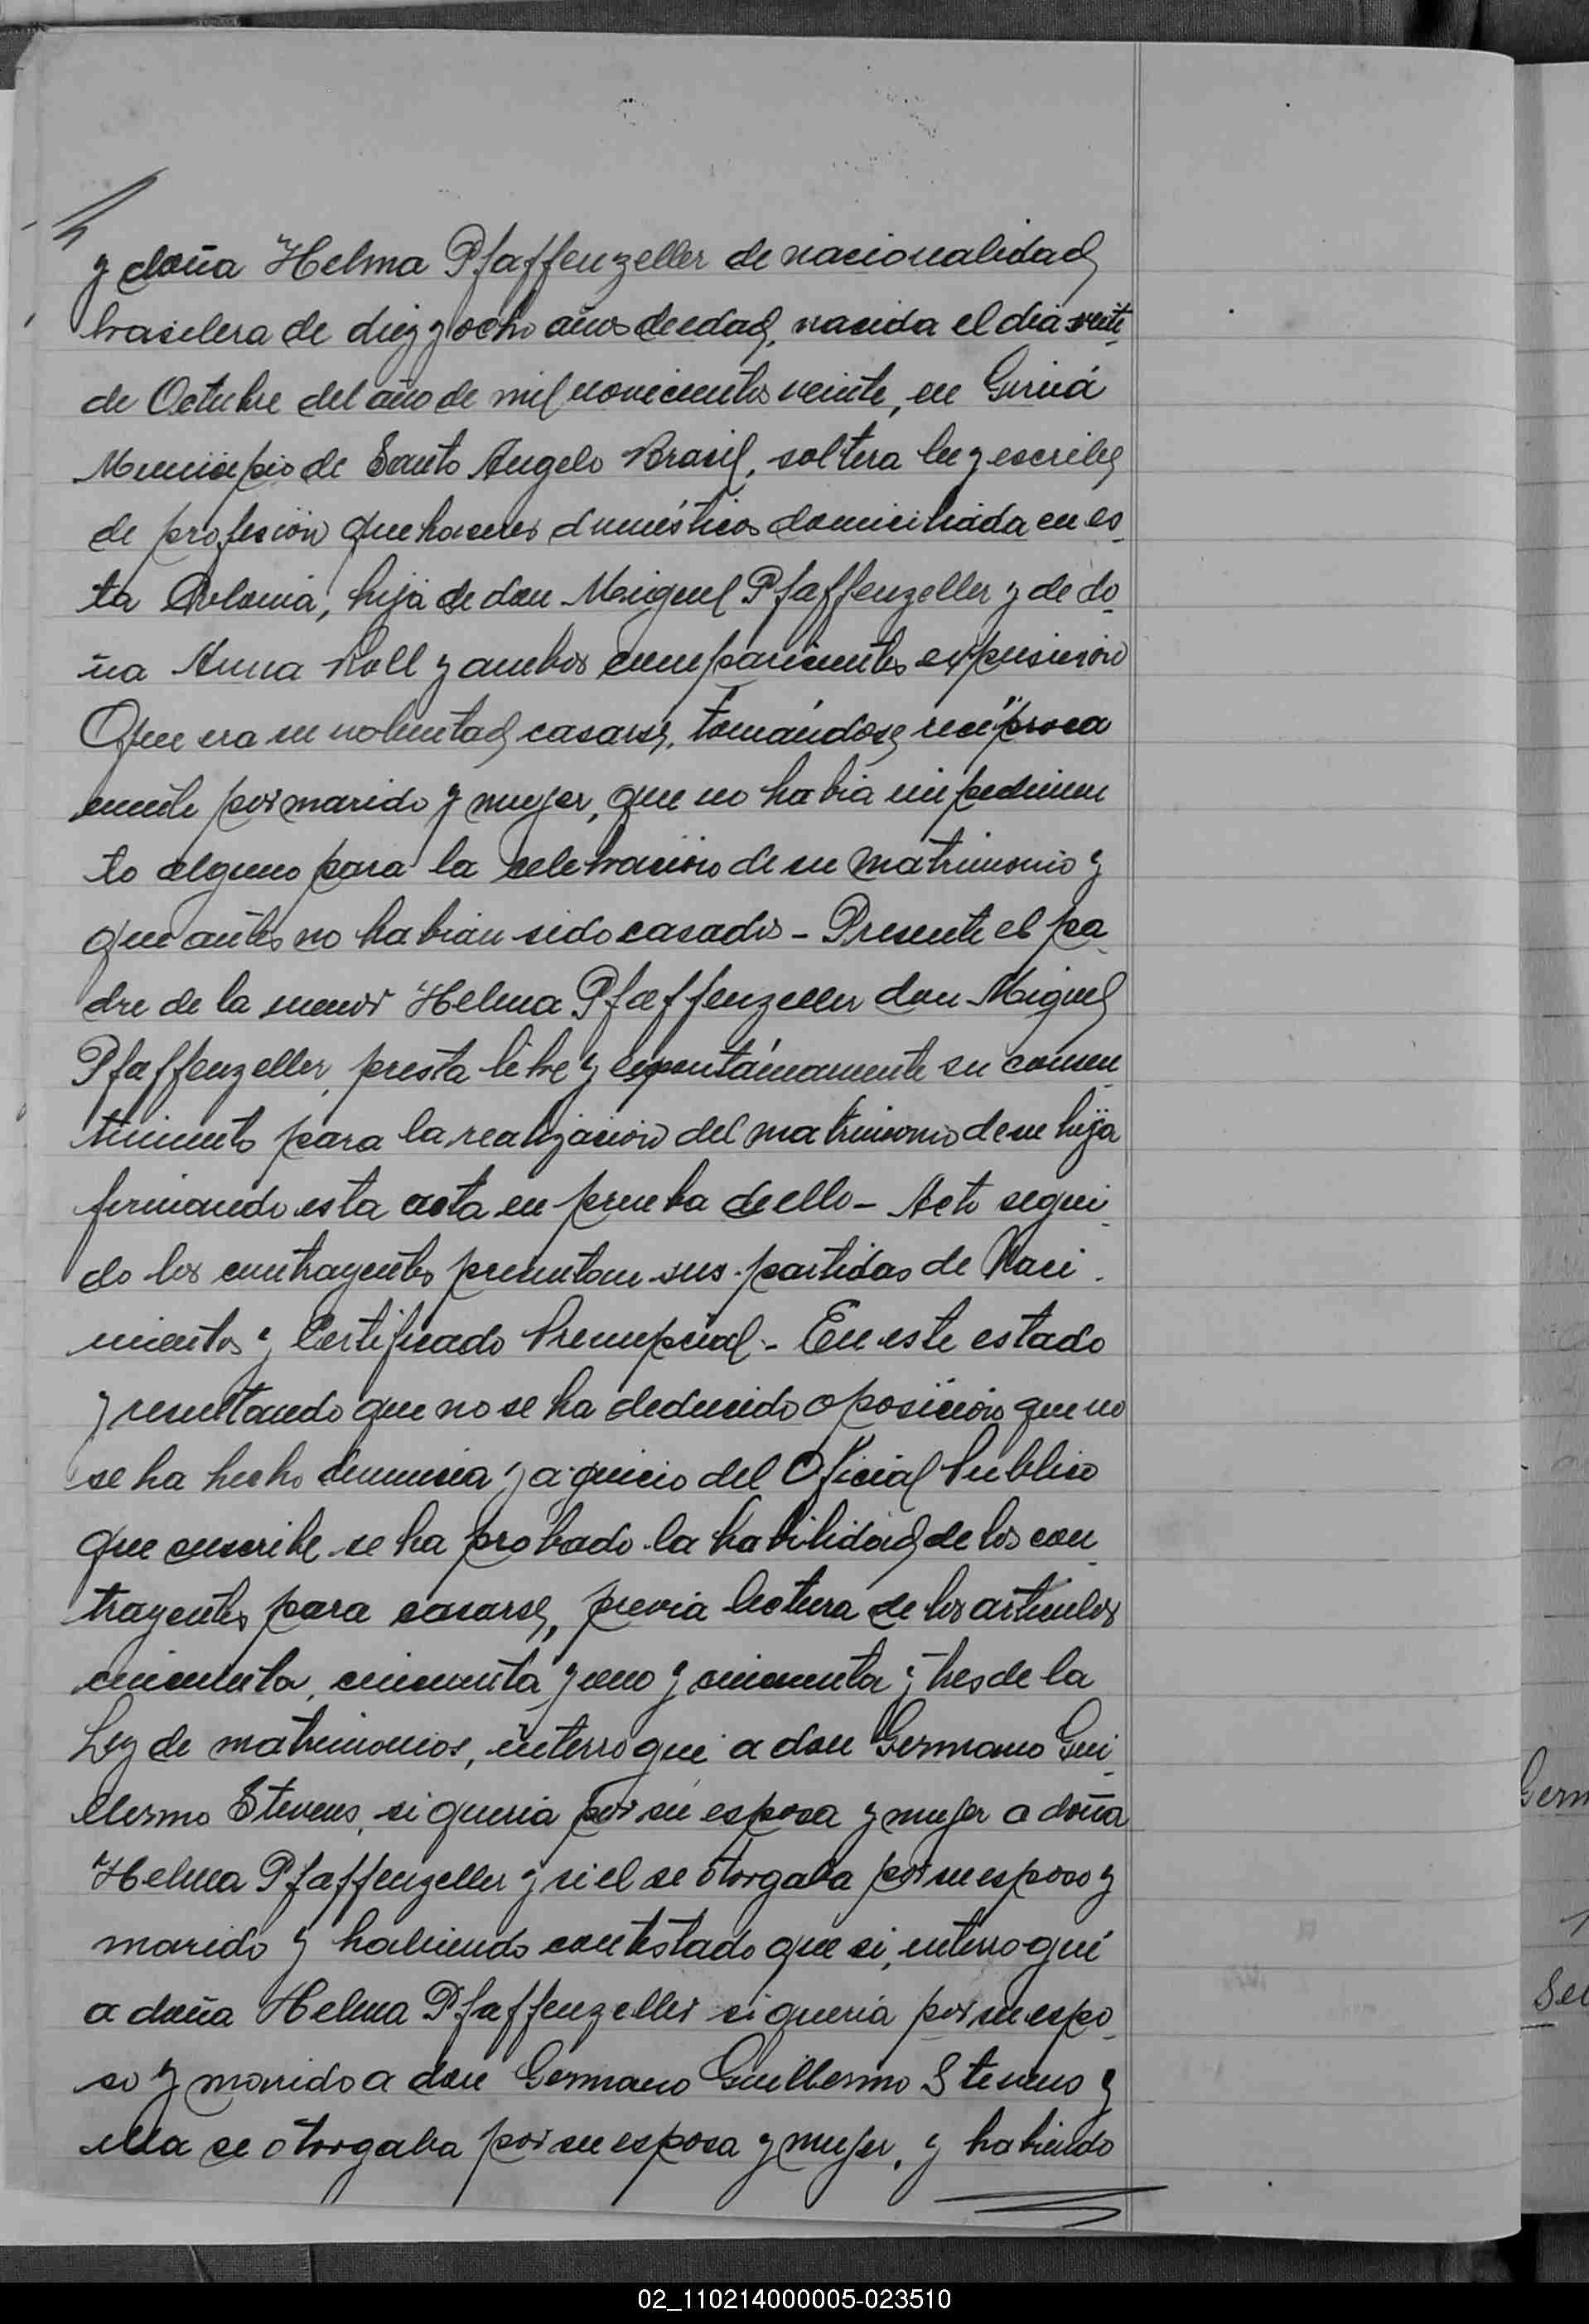 y doña Helma Pfaffenzeller de nacionalidad
brasilera de diez y ocho años de edad, nacida el dia veite
de Octubre del año de mil novecientos veinte, en Giruá
Municipio de Santo Angelo Brasil, soltera lee y escribe,
de profesión quehaceres domésticos domiciliada en es-
ta Colonia, hija de don Miguel Pfaffenzeller y de do-
ña Anna Roll y ambos comparecientes expusieron
Que era su voluntad casarse, tomándose recíproca
mente por marido y mujer, que no habia impedimen
to alguno para la celebración de su matrimonio y
que antes no habian sido casados - Presente el pa-
dre de la menor Helma Pfaffenzeller don Miguel
Pfaffenzeller, presta libre y espontáneamente su consen-
timiento para la realización del matrimonio de su hija
firmando esta acta en prueba de ello - Acto segui-
do los contrayentes presentan sus partidas de Naci-
mientos y Certificado Prenupcial - En este estado
y resultando que no se ha deducido oposición que no
se ha hecho denuncia y a juicio del Oficial Publico
que suscribe se ha probado la habilidad de los con-
trayentes para casarse, previa lectura de los articulos
cincuenta, cincuenta y uno y cincuenta y tres de la
Ley de matrimonios, interrogué a don Germano Gui-
llermo Stevens, si queria por su esposa y mujer a doña
Helma Pfaffenzeller y si el se otorgaba por su esposo y
marido y habiendo contestado que si, interrogué
a doña Helma Pfaffenzeller si queria por su espo-
so y marido a don Germano Guillermo Stevens y
ella se otorgaba por su esposa y mujer, y habiendo
Germ
Se
02_110214000005-023510